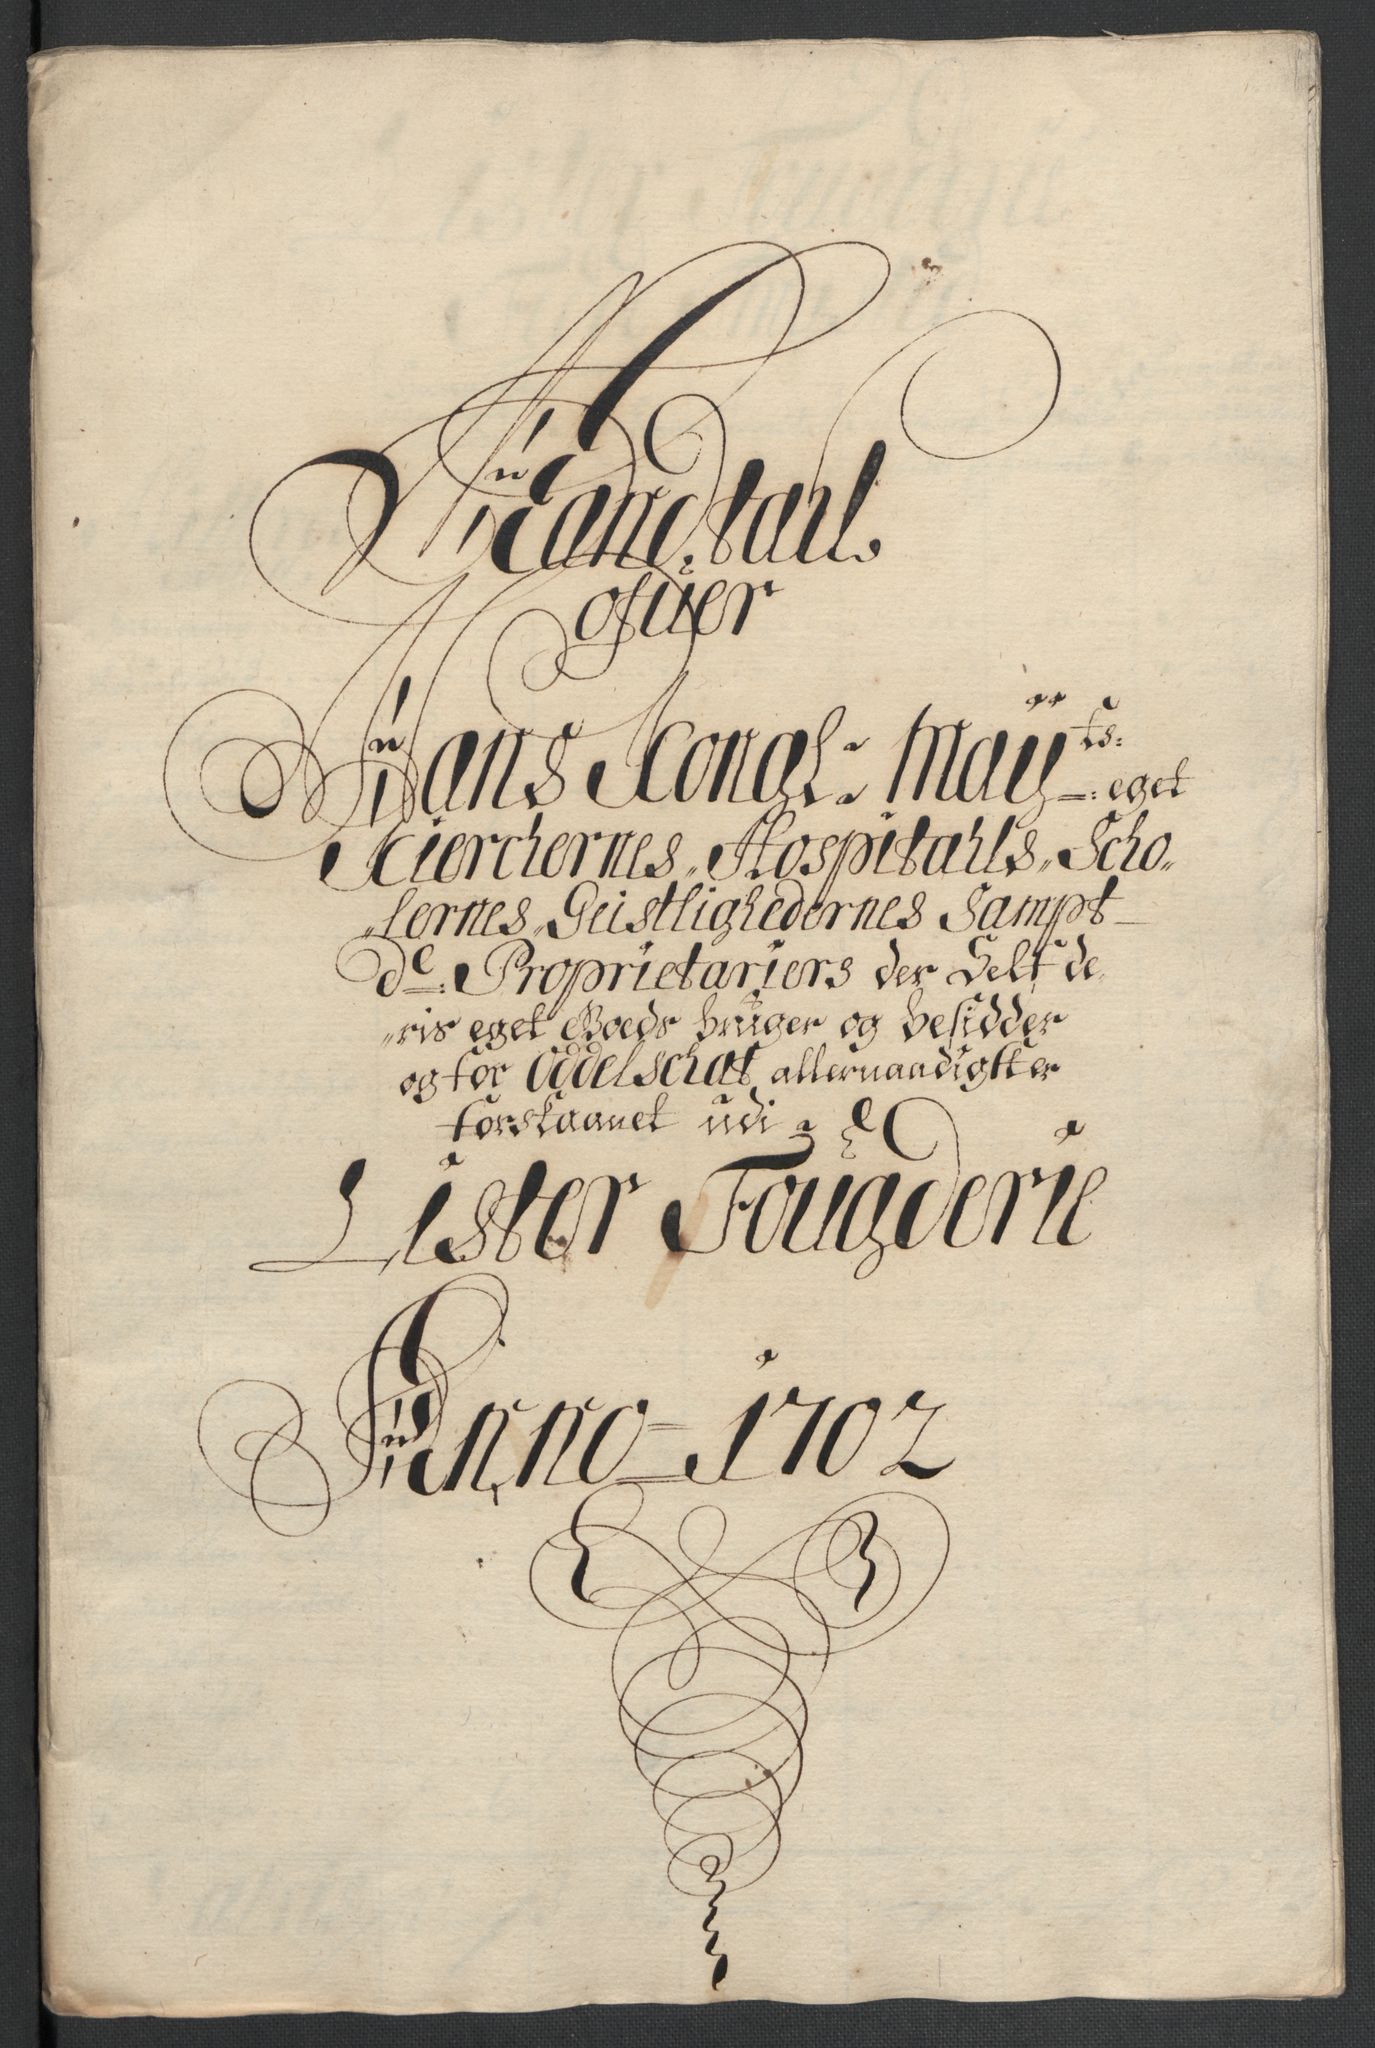 Mandtall
ofuer
Hans Kongl: Maÿts: eget
Kierchernes, Hospitahls, Scho-
lernes, Geistlighedernes Sampt
de: Proprietariers der Self de-
ris eget Goeds bruger og besidder
og for Oddelschat allernaadigst er
forskaanet udi
Lister Fougderie
Anno 1702